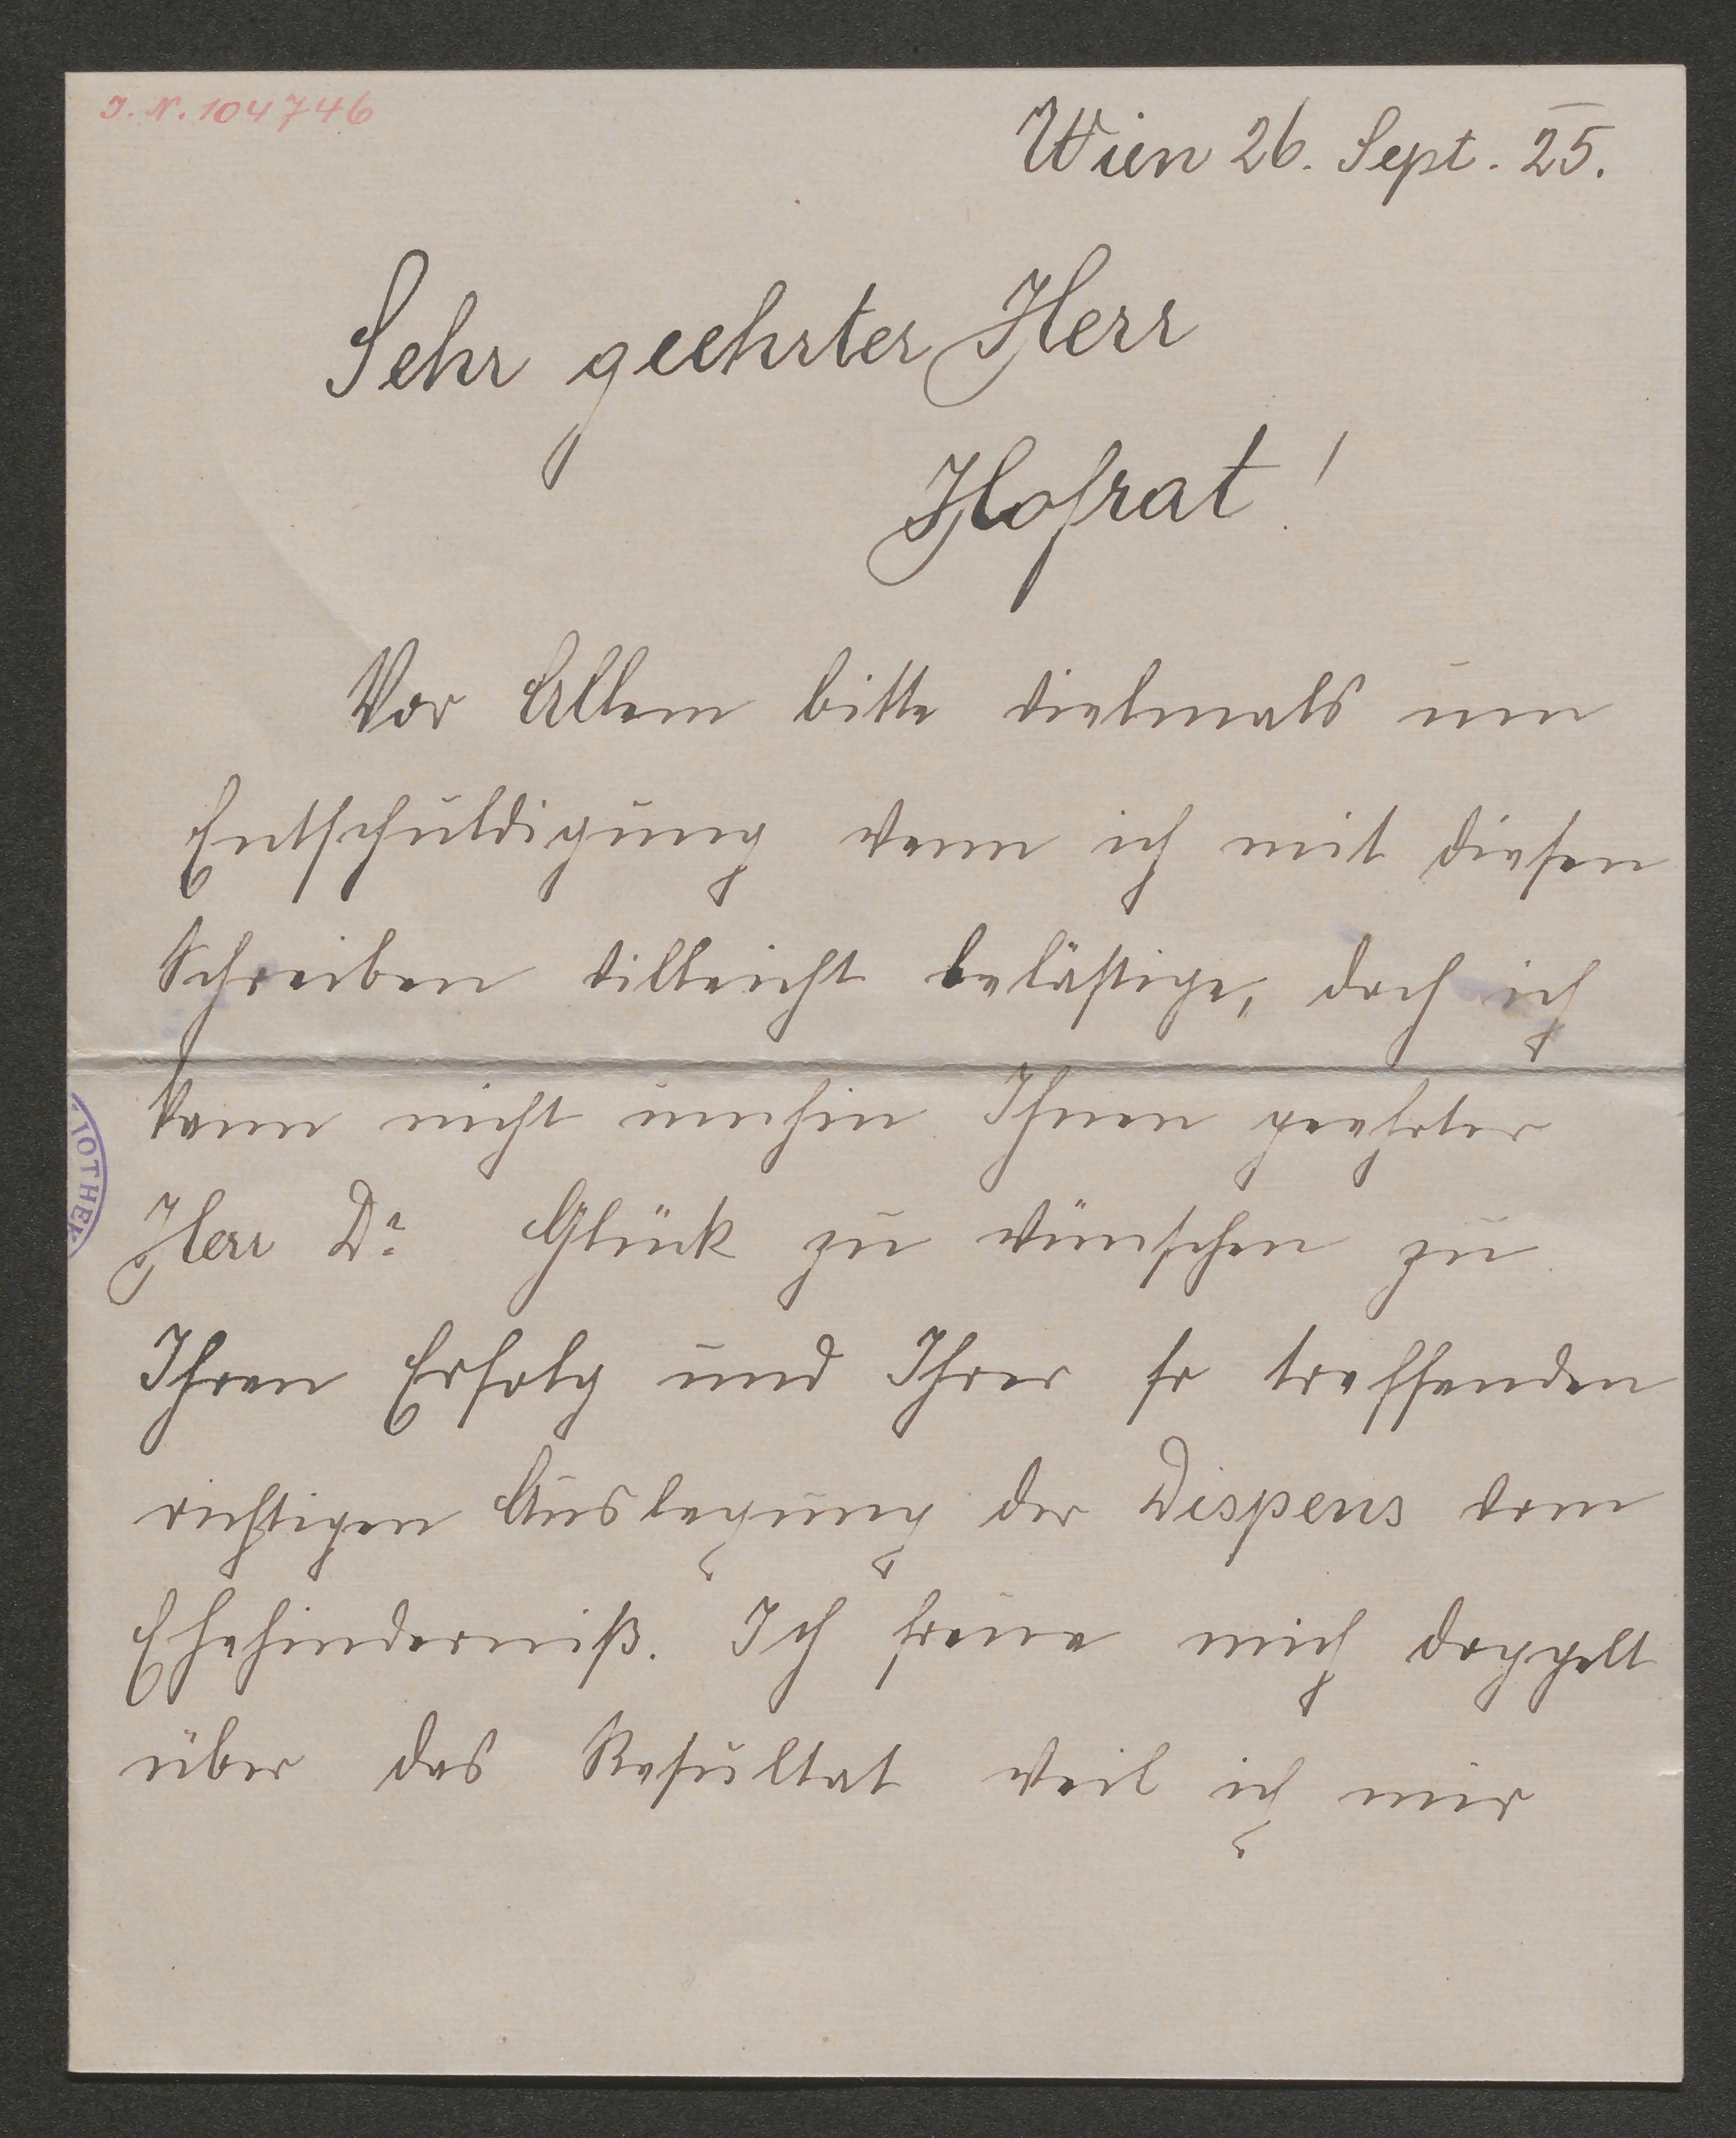 I. N. 104746
Wien 26. Sept. 25.
Sehr geehrter Herr
Hofrat!
Vor Allem bitte vielmals um
Entschuldigung wenn ich mit diesen
Schreiben villeicht belästige, doch ich
kann nicht umhin Ihnen geehrter
Herr Dr Glück zu wünschen zu
Ihren Erfolg und Ihrer so treffenden
richtigen Auslegung der Dispens vom
Ehehinderniß. Ich freue mich doppelt
über das Resultat weil ich mir
TOTHEK